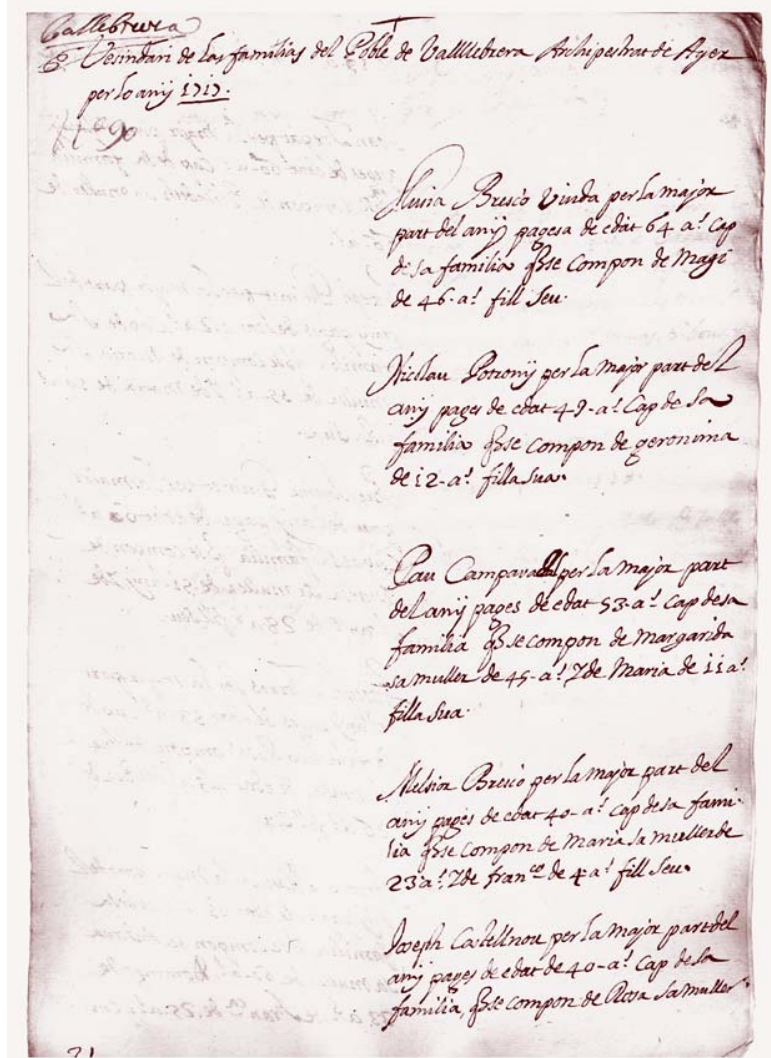 Vallebrera
Vesindari de las familias del Poble de Valllebrera Archipestrat de Ager
per lo any 1717.
Lluisa Brescò viuda per la major
part del any pagesa de edat 64 a.s cap
de sa familia q se compon de Magi
de 46. a.s fill seu.
Nicolau per la major part del
any pages de edat 49. a.s Cap de sa
familia q se compon de geronima
de 12. a.s filla sua.
Pau per la major part
del any pages de edat 53. a.s cap de sa
familia q se compon de Margarida
sa muller de 45. a.s y de Maria de 11 a.s
filla sua.
Melsior Brescò per la major part del
any pages de edat 40. a.s cap de sa fami-
lia q se compon de Maria sa muller de
23 a.s y de fran.co de 4 a.s fill seu.
Joseph Castellnou per la major part del
any pages de edat de 40. a.s cap de sa
familia, q se compon de Rosa sa muller